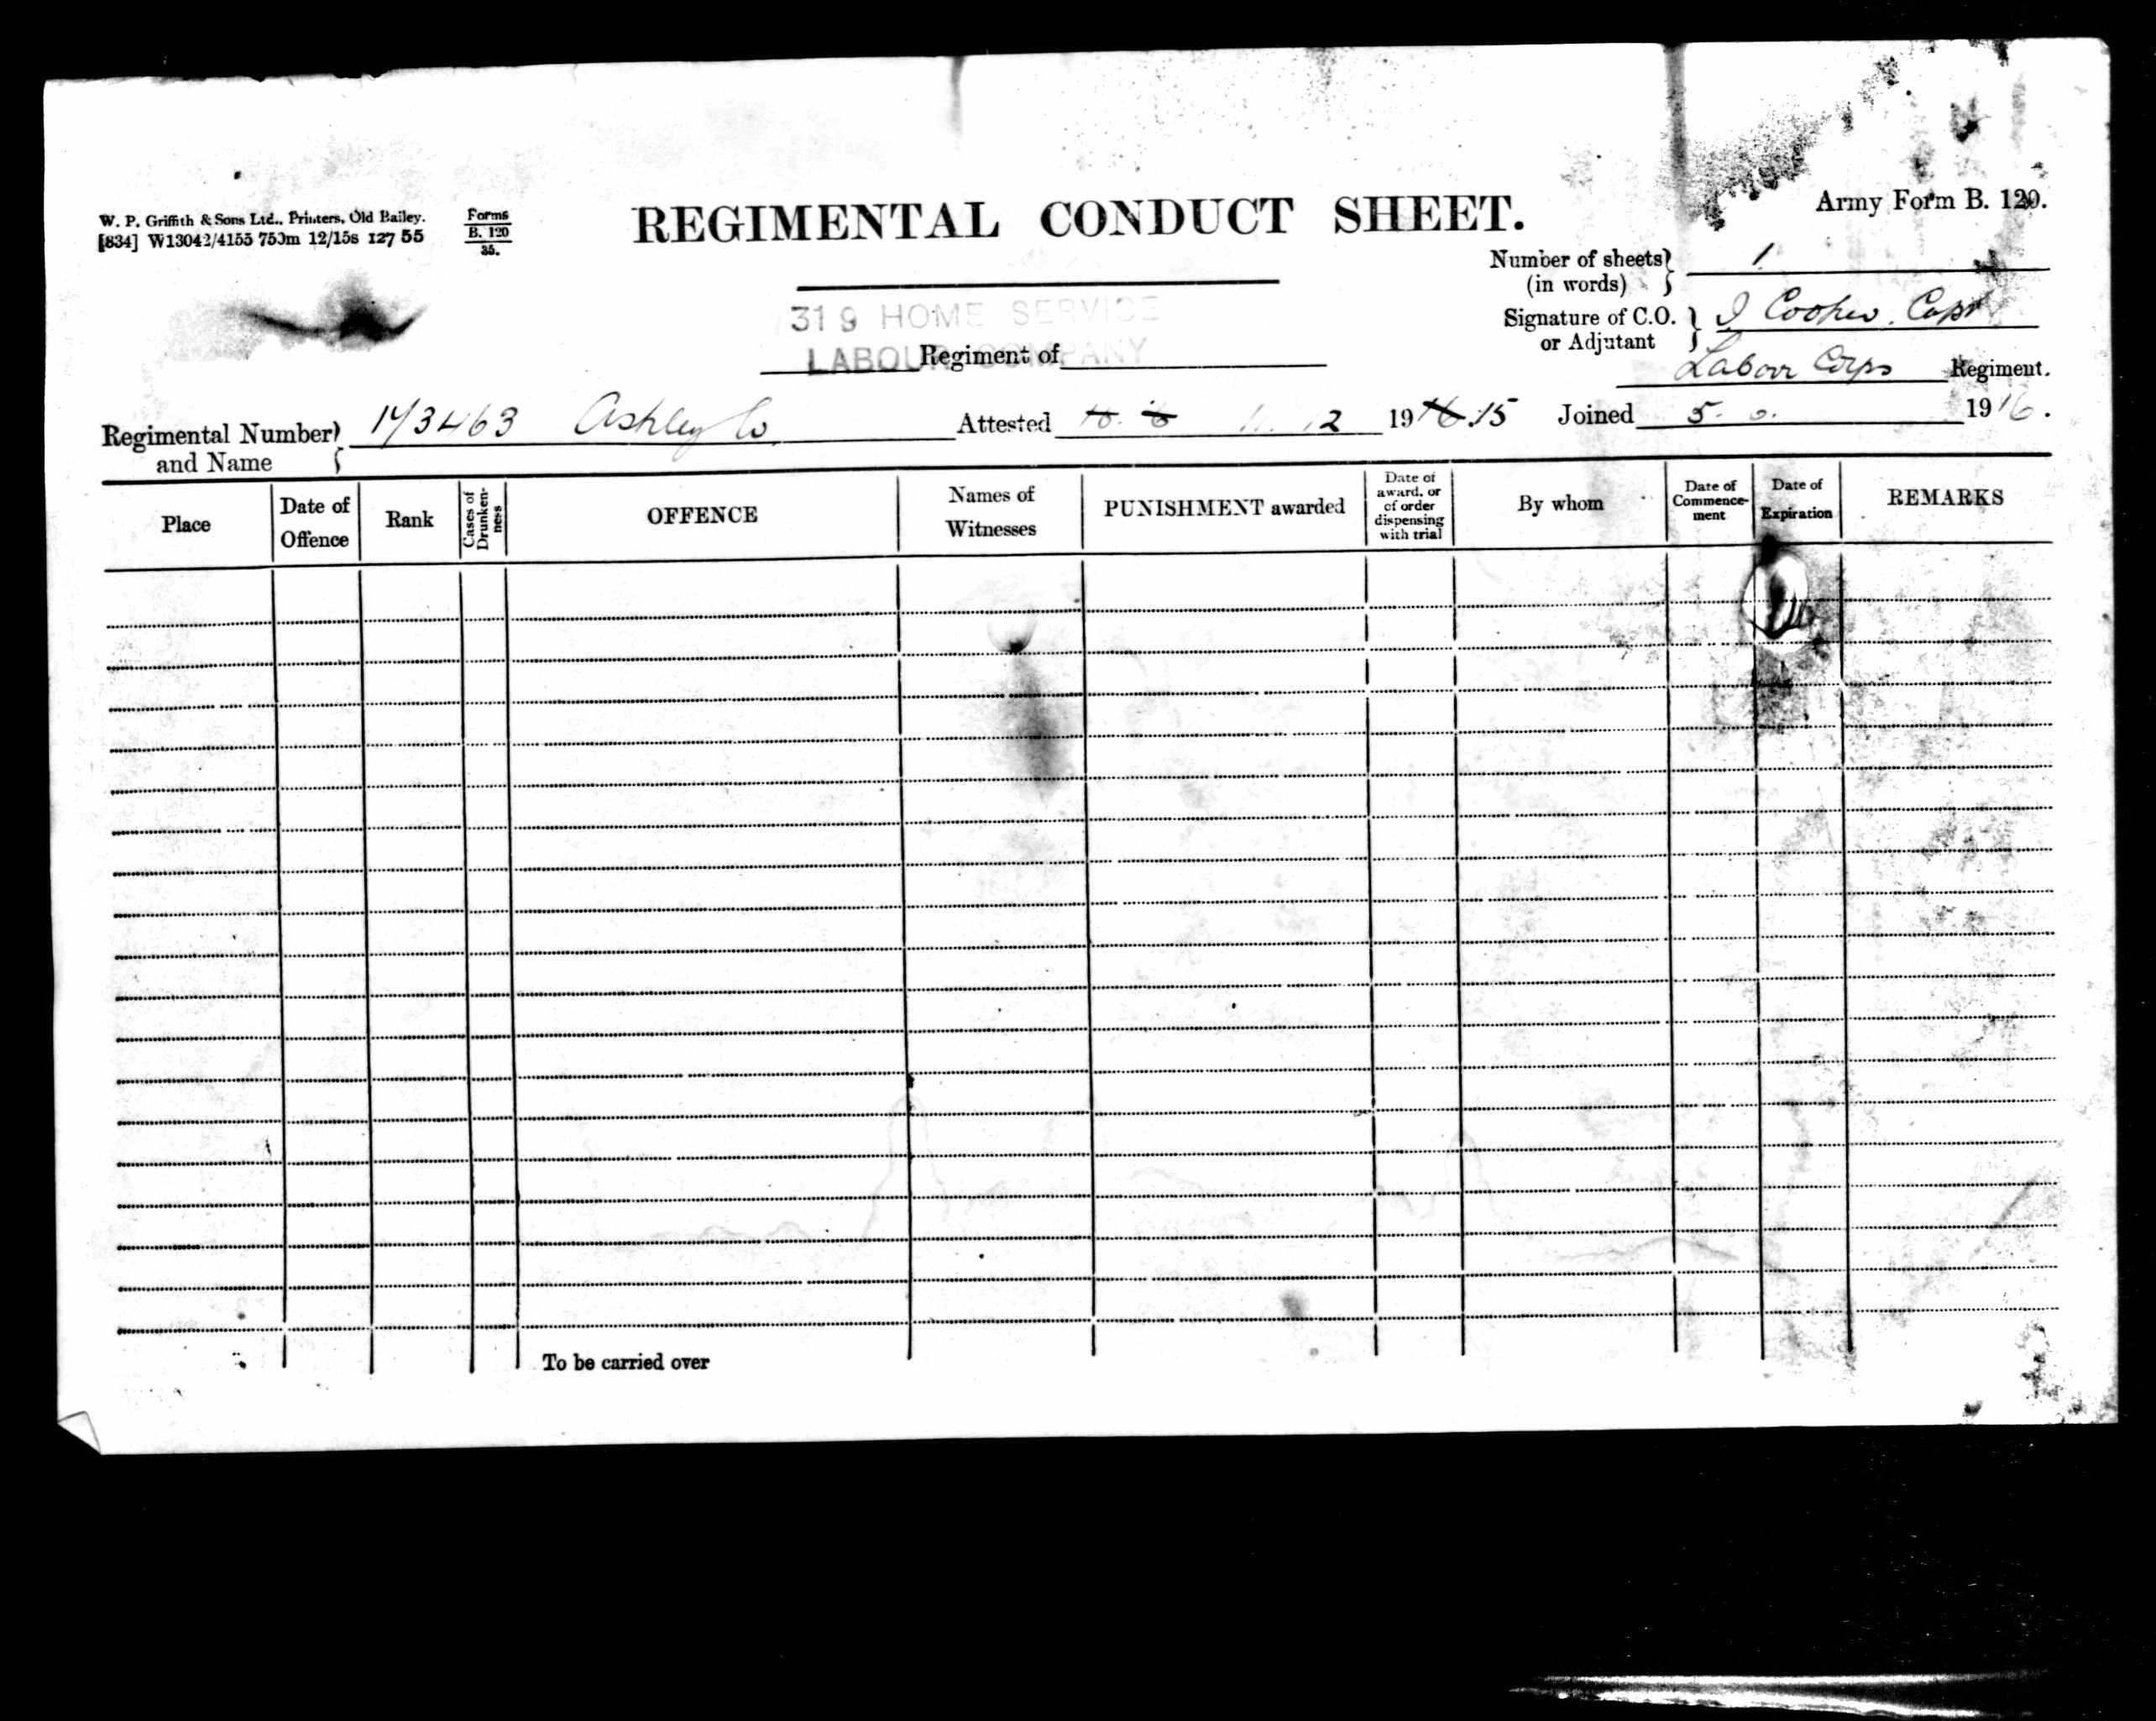 W. P. Griffith & Sons Ltd., Printers, Old Bailey.
[834] W13042/4155 750m 12/15s 127 55
Forms
B. 120
35.
REGIMENTAL CONDUCT SHEET.
Army Form B. 120.
Number of sheets (in words) } 1
319 HOME SERVICE
LABOUR COMPANY
Regiment of
Signature of C.O. or Adjutant } Capt
Labour Corps Regiment.
Regimental Number and Name } 173463 Ashley Attested 11. 12 1916.15 Joined 5. 1916.
Place
Date of Offence
Rank
Cases of Drunken-ness
OFFENCE
Names of Witnesses
PUNISHMENT awarded
Date of award, or of order dispensing with trial
By whom
Date of Commence-ment
Date of Expiration
REMARKS
To be carried over